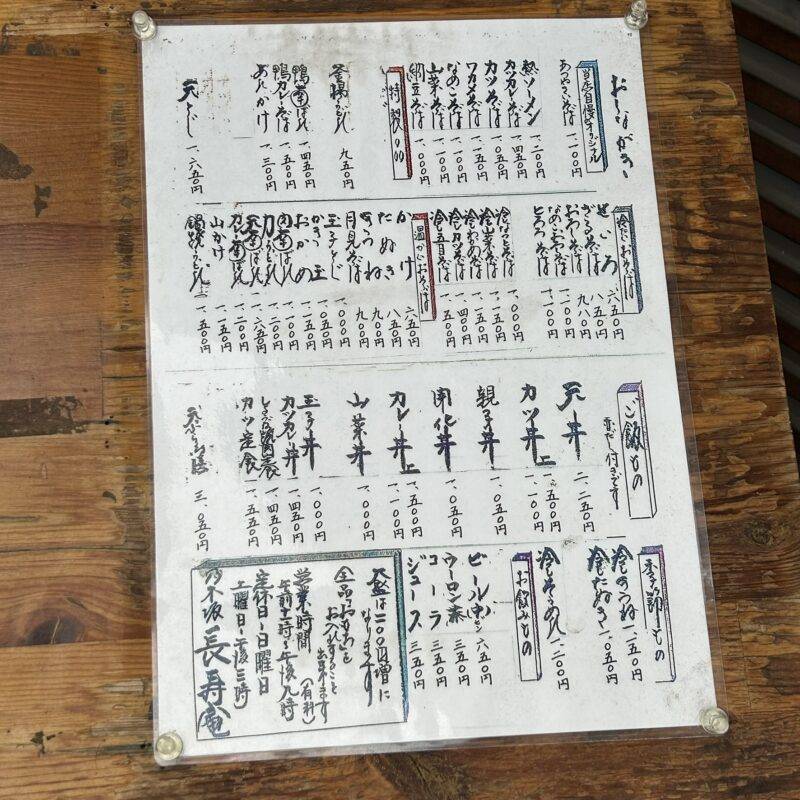 おしながき
当店自慢オリジナル
あつやきそば 一、一〇〇円
熱ソーメン 一、二〇〇円
カツカレーそば 一、四五〇円
カツそば 一、一五〇円
ワカメそば 一、一〇〇円
なめこそば 一、一〇〇円
山菜そば 一、一〇〇円
納豆そば 一、〇〇〇円
特製
釜揚うどん 九五〇円
鴨南ばん 一、四五〇円
鴨カレーそば 一、五〇〇円
あんかけ 一、三〇〇円
天とじ 一、六五〇円
冷たいおそば
せいろ 六五〇円
ざるそば 八五〇円
おろしそば 九八〇円
なめこおろしそば 一、一〇〇円
とろろそば 一、一〇〇円
冷なっとそば 一、〇〇〇円
冷山菜そば 一、一五〇円
冷カツそば
冷五目そば 一、五〇〇円
温かいおそば
かけ 六五〇円
たぬき 八五〇円
きつね 九〇〇円
月見そば 九〇〇円
玉子とじ 一、〇〇〇円
かきつ玉 一、〇五〇円
おかめ 一、一五〇円
肉南ばん 一、一〇〇円
力うどん 一、一〇〇円
天南ばん 一、六五〇円
カレー南ばん 一、二〇〇円
山かけ 一、一五〇円
鍋焼うどん 一、五〇〇円
ご飯もの
赤だし付きです
天丼 二、二五〇円
カツ丼 上 一、五〇〇円 一、一〇〇円
親子丼 一、〇五〇円
開化丼 一、〇五〇円
カレー丼 上 一、五〇〇円 一、一〇〇円
山菜丼 一、〇〇〇円
玉子丼 一、〇〇〇円
カツカレー丼 一、四五〇円
しょうが焼定食 一、四五〇円
カツ定食 一、五五〇円
天ぷら御膳 三、〇五〇円
季節もの
冷きつね 一、一五〇円
冷たぬき 一、〇五〇円
冷そうめん 一、二〇〇円
お飲みもの
ビール中ビン 六五〇円
ウーロン茶 三五〇円
コーラ 三五〇円
ジュース 三五〇円
大盛は二〇〇円増に
なります
全品おもちを
お入れすること
出来ます
(有料)
営業時間
午前十一時〜午後九時
定休日〜日曜日
土曜日〜午後三時
乃木坂 長寿庵